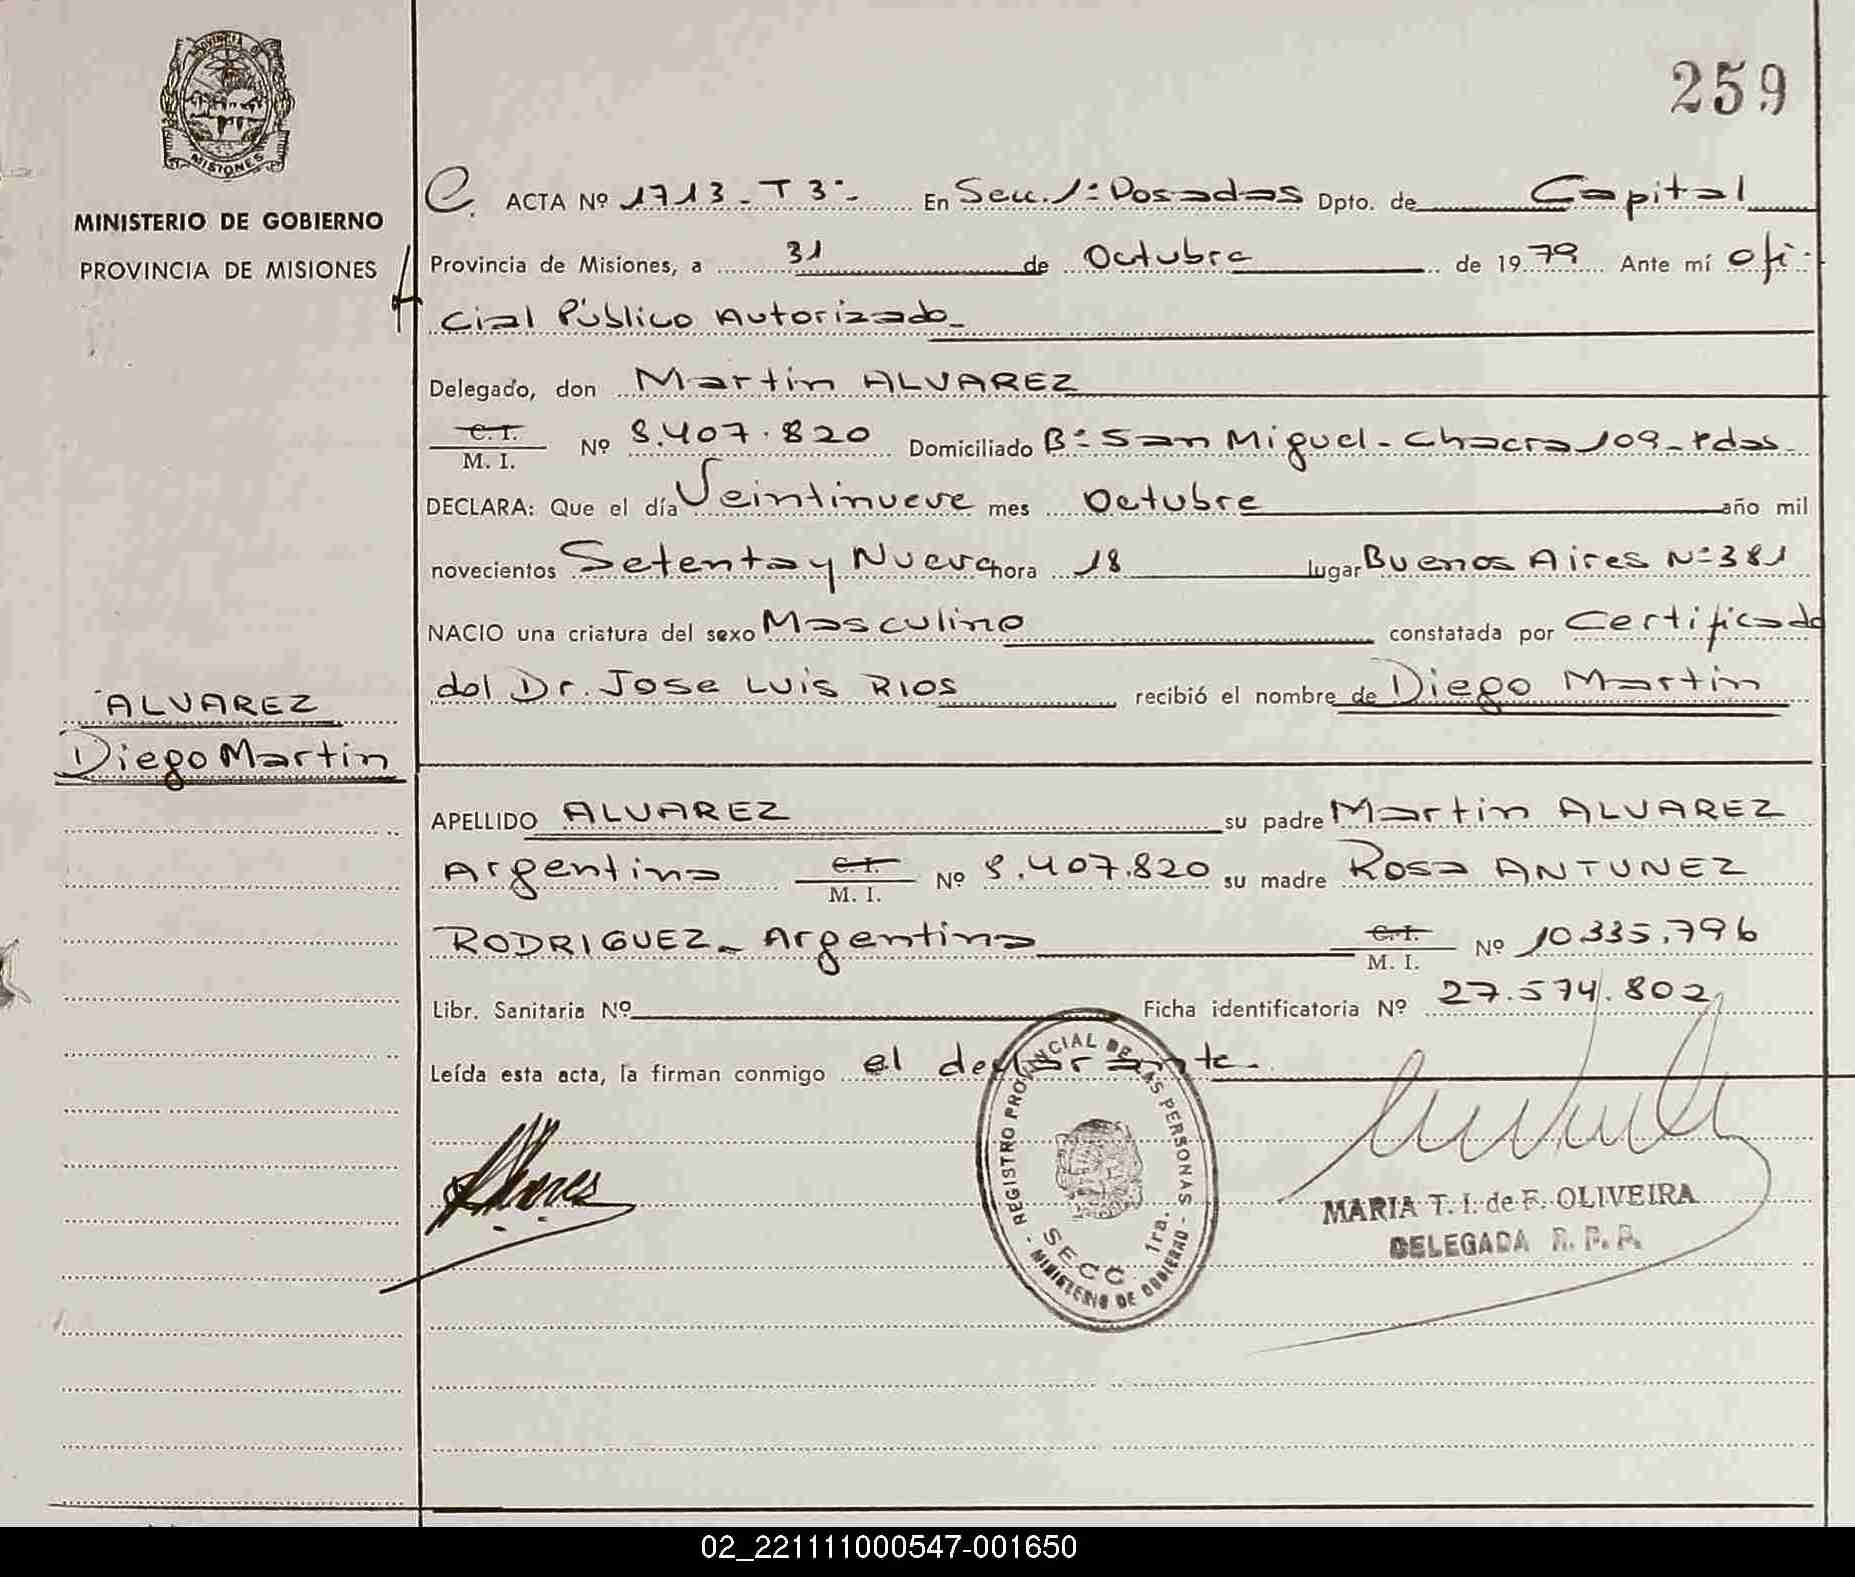 259
PROVINCIA DE
MISIONES
MINISTERIO DE GOBIERNO
PROVINCIA DE MISIONES
ACTA Nº 1713 - T 3º - En Secc. 1ª Posadas Dpto. de Capital
Provincia de Misiones, a 31 de Octubre de 1979 Ante mí ofi-
cial Público Autorizado -
Delegado, don Martin ALVAREZ
C. I.
M. I. Nº 8.407.820 Domiciliado Bº San Miguel - Chacra 109 - Pdas -
DECLARA: Que el día Veintinueve mes Octubre año mil
novecientos Setenta y Nueve hora 18 lugar Buenos Aires Nº 381
NACIO una criatura del sexo Masculino constatada por Certificado
del Dr. Jose Luis RIOS recibió el nombre de Diego Martin
ALVAREZ
Diego Martin
APELLIDO ALVAREZ su padre Martin ALVAREZ
Argentino C. I.
M. I. Nº 8.407.820 su madre Rosa ANTUNEZ
RODRIGUEZ - Argentina C. I.
M. I. Nº 10.335.796
Libr. Sanitaria Nº Ficha identificatoria Nº 27.574.802
Leída esta acta, la firman conmigo el declarante -
- REGISTRO PROVINCIAL DE LAS PERSONAS -
SECC. 1ra.
MINISTERIO DE GOBIERNO
MARIA T. I. de F. OLIVEIRA
DELEGADA R. P. P.
02_221111000547-001650